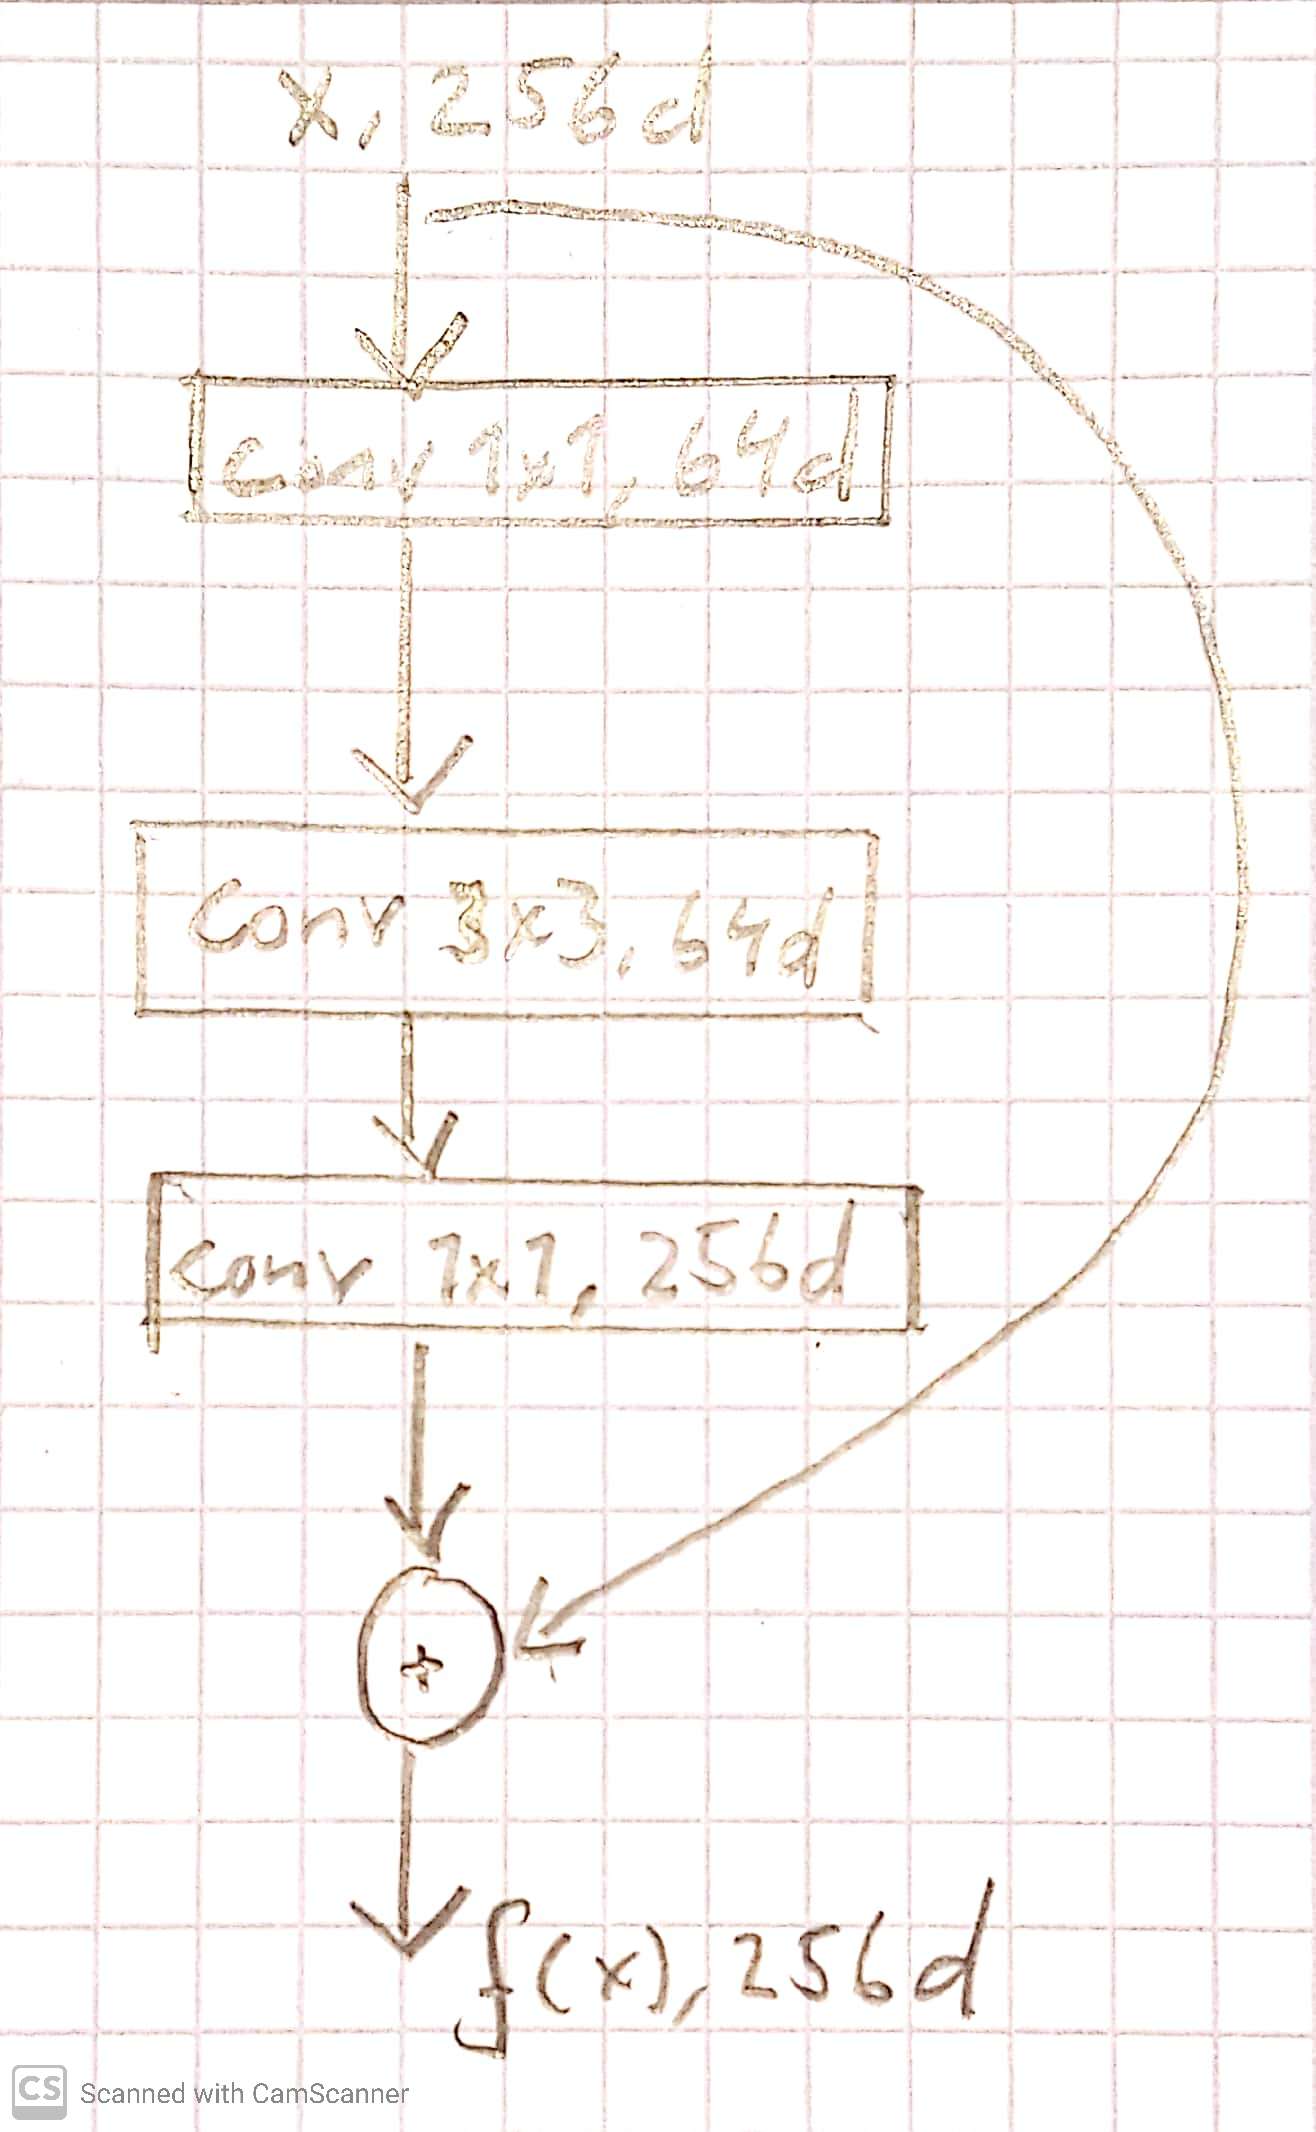 x, 256d
conv 1x1, 64d
conv 3x3, 64d
conv 1x1, 256d
+
f(x), 256d
CS Scanned with CamScanner